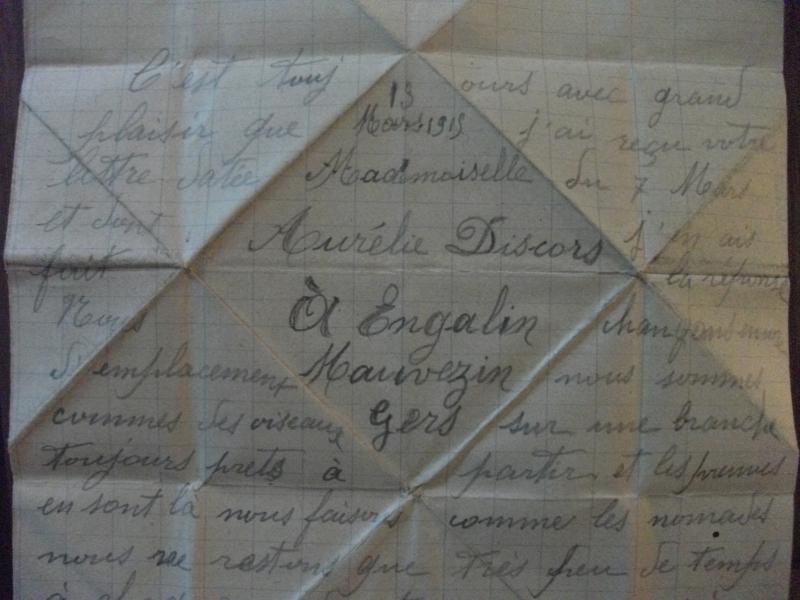 C'est touj 13 ours avec grand
plaisir que Mars 1915 j'ai reçu votre
lettre datée Mademoiselle du 7 Mars
et dont Aurélie Discors j'en ais
fait la réponse
Nous À Engalin changeons encore
d'emplacement Mauvezin nous sommes
commes des oiseaux Gers sur une branche
toujours prets à partir et les preuves
en sont là nous faisons comme les nomades
nous ne restons que très peu de temps
à